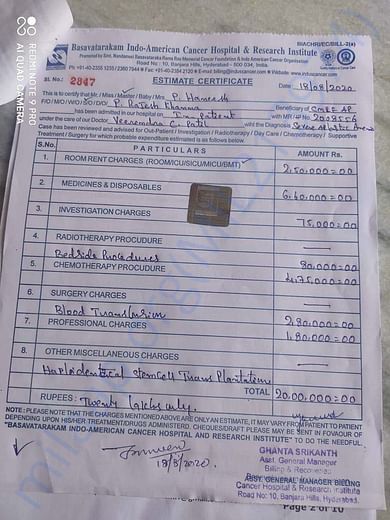 REDMI NOTE 9 PRO
AI QUAD CAMERA
BIACHRI/EC/BILL-2(a)
Basavatarakam Indo-American Cancer Hospital & Research Institute
Promoted by Smt. Nandamuri Basavataraka Rama Rao Memorial Cancer Foundation & Indo American Cancer Organisation
Road No : 10, Banjara Hills, Hyderabad - 500 034, India.
Ph: +91-40-2355 1235 / 2360 7944 Fax: +91-40-2354 2120 E-mail: billing@induscancer.com Website: www.induscancer.com
ESTIMATE CERTIFICATE
Sl. No.: 2847
Date 18/08/2020
This is to certify that Mr / Miss / Master / Baby / Mrs. P. Haneesh
F/O / M/O / W/O / S/O / D/O P. Rajesh Khanna Beneficiary of CMRF AP
has been admitted in our hospital as In patient with MR / IP No. 2008556
under the care of our Doctor Veerendra C. Patil with the Diagnosis Severe aplastic Anemia
Case has been reviewed and advised for Out-Patient / Investigation / Radiotherapy / Day Care / Chemotherapy / Supportive
Treatment / Surgery for which probable expenditure estimated as under
S.No. PARTICULARS AMOUNT Rs.
1. ROOM RENT CHARGES (ROOM/ICU/SICU/MICU/BMT) 2,50,000=00
2. MEDICINES & DISPOSABLES 6,60,000=00
3. INVESTIGATION CHARGES 75,000=00
4. RADIOTHERAPY PROCUDURE
Bedside Procedures 80,000=00
5. CHEMOTHERAPY PROCUDURE 4,75,000=00
6. SURGERY CHARGES
Blood Transfusion 2,80,000=00
7. PROFESSIONAL CHARGES 1,80,000=00
8. OTHER MISCELLANEOUS CHARGES
Haploidentical Stemcell Transplantation
TOTAL 20,00,000=00
RUPEES: Twenty lakhs only.
NOTE: PLEASE NOTE THAT THE CHARGES MENTIONED ABOVE ARE ONLY AN ESTIMATE, IT MAY VARY FROM PATIENT TO PATIENT
DEPENDING UPON HIS/HER TREATMENT/DRUGS ADMINISTERD. CHEQUES/DRAFT PLEASE BE SENT IN FOVAUR OF
"BASAVATARAKAM INDO-AMERICAN CANCER HOSPITAL AND RESEARCH INSTITUTE" TO DO THE NEEDFUL.
18/8/2020.
GHANTA SRIKANTH
Asst. General Manager
Billing & Recoveries
ASST. GENERAL MANAGER BILLING
Cancer Hospital & Research Institute
Road No: 10, Banjara Hills, Hyderabad.
Page 2 of 10